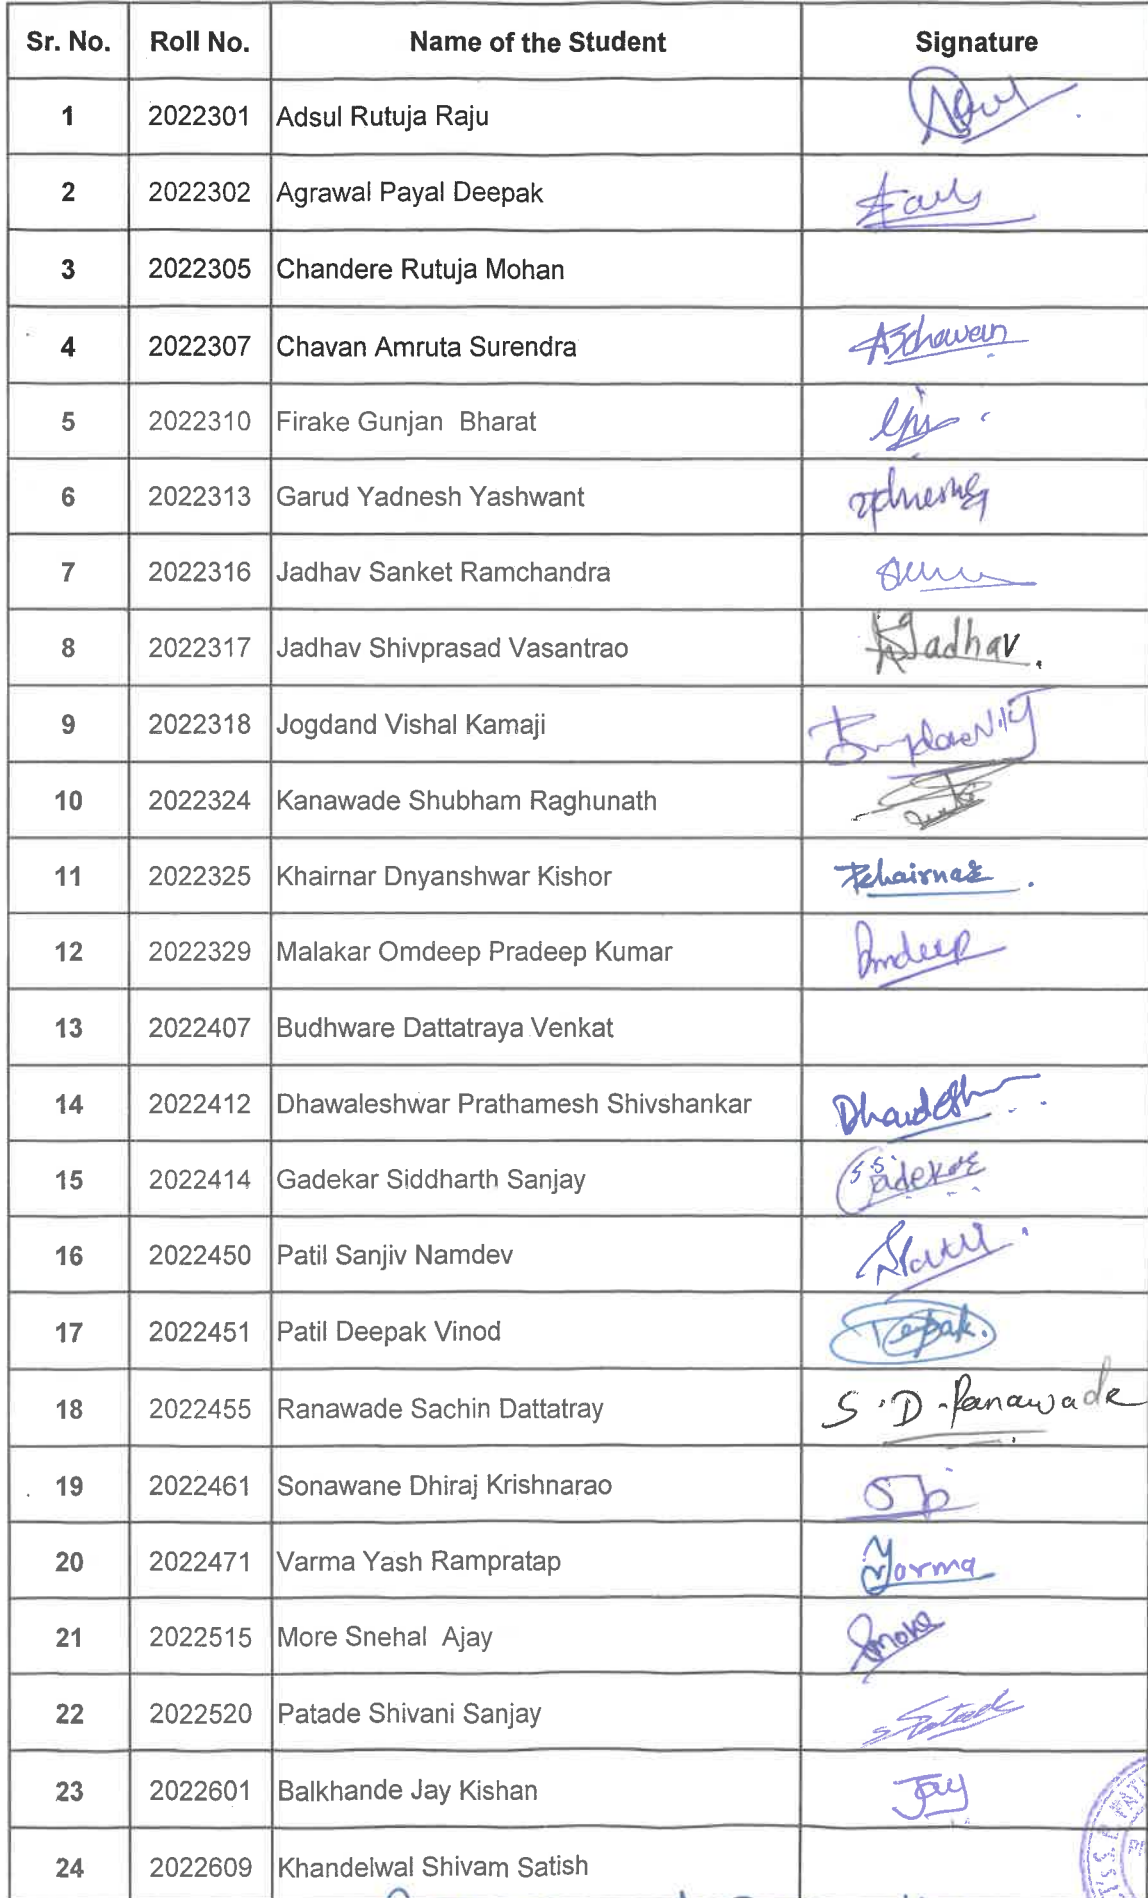 Sr. No. Roll No. Name of the Student Signature
1 2022301 Adsul Rutuja Raju
2 2022302 Agrawal Payal Deepak
3 2022305 Chandere Rutuja Mohan
4 2022307 Chavan Amruta Surendra
5 2022310 Firake Gunjan Bharat
6 2022313 Garud Yadnesh Yashwant
7 2022316 Jadhav Sanket Ramchandra
8 2022317 Jadhav Shivprasad Vasantrao Jadhav.
9 2022318 Jogdand Vishal Kamaji
10 2022324 Kanawade Shubham Raghunath
11 2022325 Khairnar Dnyanshwar Kishor
12 2022329 Malakar Omdeep Pradeep Kumar Omdeep
13 2022407 Budhware Dattatraya Venkat
14 2022412 Dhawaleshwar Prathamesh Shivshankar
15 2022414 Gadekar Siddharth Sanjay Gadekar
16 2022450 Patil Sanjiv Namdev
17 2022451 Patil Deepak Vinod Deepak.
18 2022455 Ranawade Sachin Dattatray S.D.Ranawade
19 2022461 Sonawane Dhiraj Krishnarao
20 2022471 Varma Yash Rampratap
21 2022515 More Snehal Ajay
22 2022520 Patade Shivani Sanjay
23 2022601 Balkhande Jay Kishan Jay
24 2022609 Khandelwal Shivam Satish